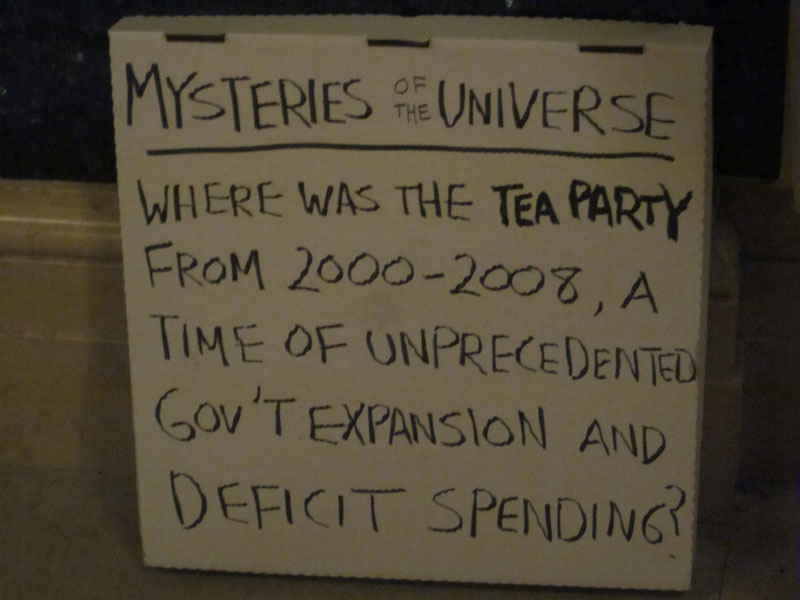 MYSTERIES OF THE UNIVERSE
WHERE WAS THE TEA PARTY
FROM 2000-2008, A
TIME OF UNPRECEDENTED
GOV'T EXPANSION AND
DEFICIT SPENDING?